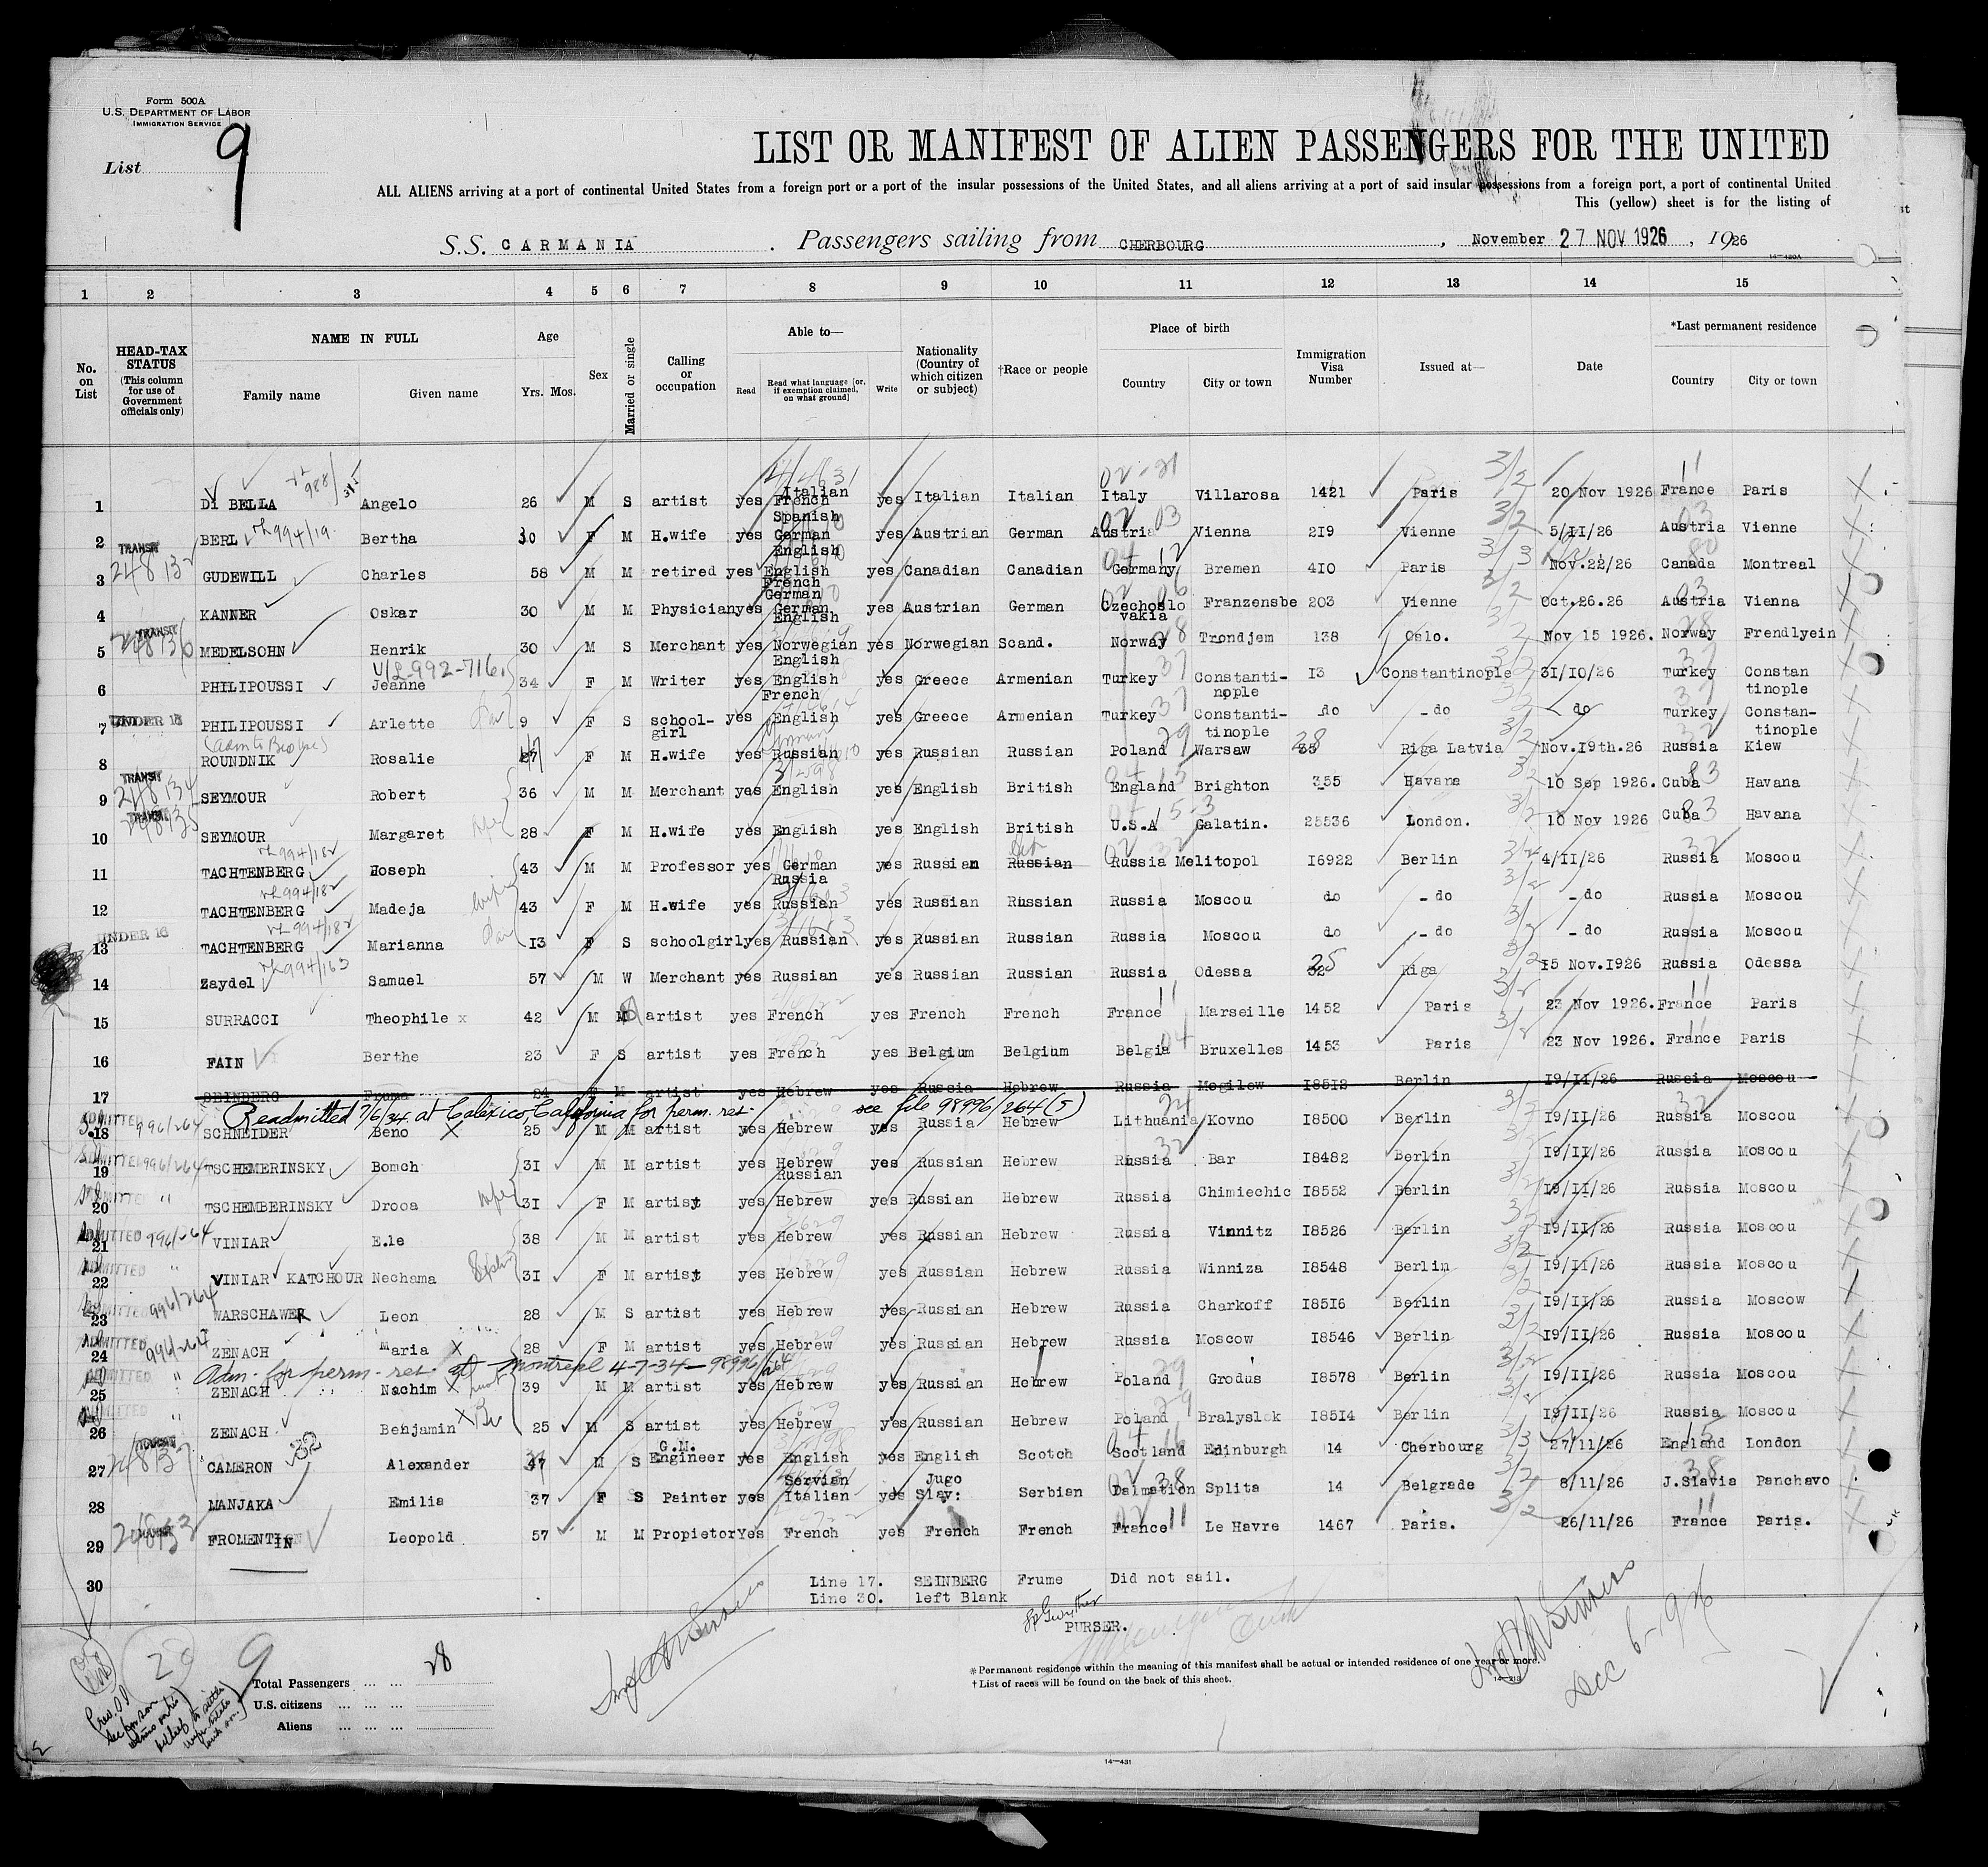 Form 500A
U.S. DEPARTMENT OF LABOR
IMMIGRATION SERVICE
List 9
LIST OR MANIFEST OF ALIEN PASSENGERS FOR THE UNITED
ALL ALIENS arriving at a port of continental United States from a foreign port or a port of the insular possessions of the United States, and all aliens arriving at a port of said insular possessions from a foreign port, a port of continental United
This (yellow) sheet is for the listing of
S.S. CARMANIA . Passengers sailing from CHERBOURG , November 27 NOV 1926 , 1926
14-430A
1 2 3 4 5 6 7 8 9 10 11 12 13 14 15
No. on List
HEAD-TAX STATUS (This column for use of Government officials only)
NAME IN FULL Family name Given name
Age Yrs. Mos.
Sex
Married or single
Calling or occupation
Able to— Read Read what language [or, if exemption claimed, on what ground] Write
Nationality (Country of which citizen or subject)
†Race or people
Place of birth Country City or town
Immigration Visa Number
Issued at—
Date
*Last permanent residence Country City or town
1 Di BELLA Angelo 26 M S artist yes Italian French Spanish yes Italian Italian Italy Villarosa 1421 Paris 20 Nov 1926 France Paris
2 BERL Bertha 30 F M H.wife yes German English yes Austrian German Austria Vienna 219 Vienne 5/II/26 Austria Vienne
3 TRANSIT 248132 GUDEWILL Charles 58 M M retired yes English French German yes Canadian Canadian Germany Bremen 410 Paris Nov.22/26 Canada Montreal
4 KANNER Oskar 30 M M Physician yes German English yes Austrian German Czechoslo vakia Franzensbe 203 Vienne Oct.26.26 Austria Vienna
5 TRANSIT 248136 MEDELSOHN Henrik 30 M S Merchant yes Norwegian English yes Norwegian Scand. Norway Trondjem 138 Oslo. Nov 15 1926. Norway Frendlyein
V/L-992-716
6 PHILIPOUSSI Jeanne 34 F M Writer yes English French yes Greece Armenian Turkey Constanti- nople I3 Constantinople 3I/IO/26 Turkey Constan tinople
7 UNDER 16 PHILIPOUSSI Arlette 9 F S school- girl yes English yes Greece Armenian Turkey Constanti- tinople do -do do Turkey Constan- tinople
8 ROUNDNIK Rosalie 27 F M H.wife yes Russian yes Russian Russian Poland Warsaw 28 Riga Latvia Nov.I9th.26 Russia Kiew
9 TRANSIT 248134 SEYMOUR Robert 36 M M Merchant yes English yes English British England Brighton 355 Havana 10 Sep 1926. Cuba Havana
10 TRANSIT 248135 SEYMOUR Margaret 28 F M H.wife yes English yes English British U.S.A Galatin. 25536 London. 10 Nov 1926 Cuba Havana
11 TACHTENBERG Joseph 43 M M Professor yes German Russia yes Russian Russian Russia Melitopol I6922 Berlin 4/II/26 Russia Moscou
12 TACHTENBERG Madeja wife 43 F M H.wife yes Russian yes Russian Russian Russia Moscou do -do -do Russia Moscou
13 UNDER 16 TACHTENBERG Marianna I3 F S schoolgirl yes Russian yes Russian Russian Russia Moscou do -do -do Russia Moscou
14 Zaydel Samuel 57 M W Merchant yes Russian yes Russian Russian Russia Odessa 25 Riga I5 Nov.I926 Russia Odessa
15 SURRACCI Theophile x 42 M M artist yes French yes French French France Marseille 1452 Paris 23 Nov 1926. France Paris
16 FAIN Berthe 23 F S artist yes French yes Belgium Belgium Belgia Bruxelles 1453 Paris 23 Nov 1926. France Paris
17 SEINBERG Fruma 24 F M artist yes Hebrew yes Russia Hebrew Russia Mogilew I85I2 Berlin I9/II/26 Russia Moscou
Readmitted 7/6/34 at Calexico, California for perm. res. see file 98996/264 (5)
18 ADMITTED 996/264 SCHNEIDER Beno X 25 M M artist yes Hebrew yes Russia Hebrew Lithuania Kovno I8500 Berlin I9/II/26 Russia Moscou
19 ADMITTED 996/264 TSCHEMERINSKY Bomch 3I M M artist yes Hebrew Russian yes Russian Hebrew Russia Bar I8482 Berlin I9/II/26 Russia Moscou
20 ADMITTED " TSCHEMBERINSKY Drooa wife 3I F M artist yes Hebrew yes Russian Hebrew Russia Chimiechic I8552 Berlin I9/II/26 Russia Moscou
21 ADMITTED 996/264 VINIAR E.le 38 M M artist yes Hebrew yes Russian Hebrew Russia Vinnitz I8526 Berlin I9/II/26 Russia Moscou
22 ADMITTED " VINIAR KATCHOUR Nechama 3I F M artist yes Hebrew yes Russian Hebrew Russia Winniza I8548 Berlin I9/II/26 Russia Moscou
23 ADMITTED 996/264 WARSCHAWER Leon 28 M S artist yes Hebrew yes Russian Hebrew Russia Charkoff I85I6 Berlin I9/II/26 Russia Moscow
24 ADMITTED 996/264 ZENACH Maria X 28 F M artist yes Hebrew yes Russian Hebrew Russia Moscow I8546 Berlin I9/II/26 Russia Moscou
Adm. for perm. res. at Montreal 4-7-34 — 98996/264
25 ADMITTED " ZENACH Nachim X 39 M M artist yes Hebrew yes Russian Hebrew Poland Grodus I8578 Berlin I9/II/26 Russia Moscou
26 ADMITTED " ZENACH Benjamin X 25 M S artist yes Hebrew yes Russian Hebrew Poland Bralyslok I85I4 Berlin I9/II/26 Russia Moscou
27 TRANSIT 248137 CAMERON Alexander 37 M S G.M. Engineer yes English yes English Scotch Scotland Edinburgh 14 Cherbourg 27/11/26 England London
28 MANJAKA Emilia 37 F S Painter yes Servian Italian yes Jugo Slav: Serbian Dalmation Splita 14 Belgrade 8/11/26 J.Slavia Panchavo
29 FROMENTIN Leopold 57 M M Propietor Yes French yes French French France Le Havre 1467 Paris. 26/11/26 France Paris.
30 Line 17. SEINBERG Frume Did not sail.
Line 30. left Blank
PURSER.
28
9
Total Passengers ... ... 28
U.S. citizens ... ... ...
Aliens ... ... ...
*Permanent residence within the meaning of this manifest shall be actual or intended residence of one year or more.
†List of races will be found on the back of this sheet.
Dec 6-1926
14-431